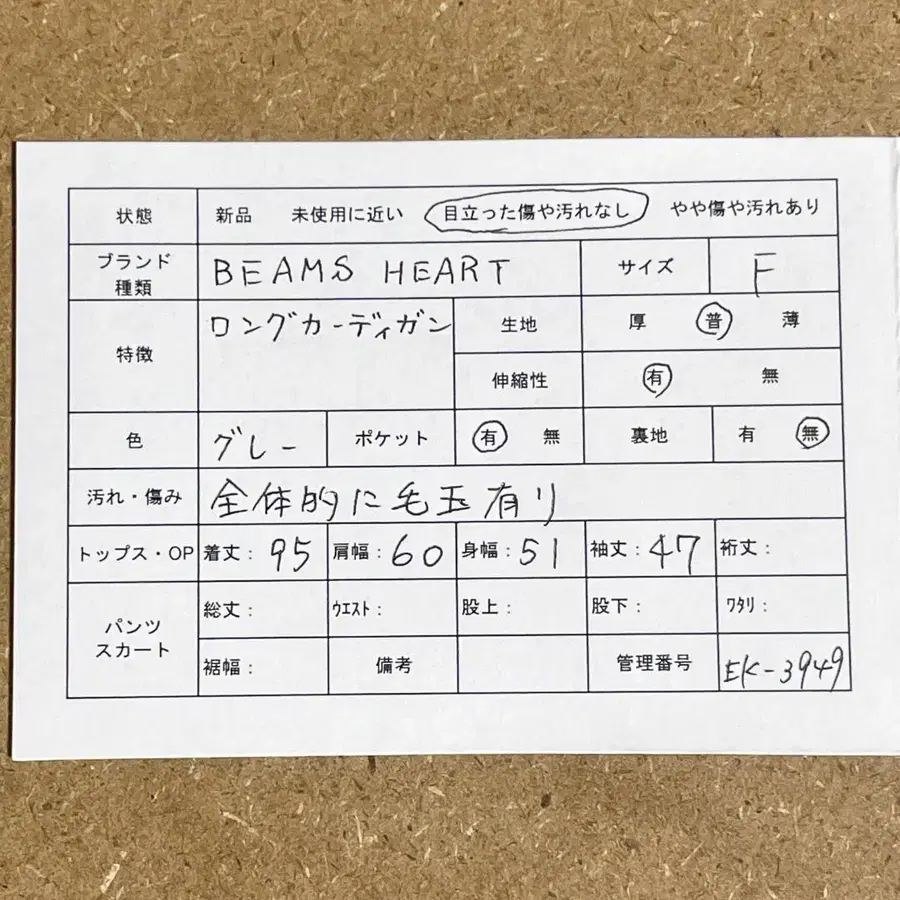 状態 新品 未使用に近い 目立った傷や汚れなし やや傷や汚れあり
ブランド 種類 BEAMS HEART サイズ F
特徴 ロングカーディガン 生地 厚 普 薄
伸縮性 有 無
色 グレー ポケット 有 無 裏地 有 無
汚れ・傷み 全体的に毛玉有り
トップス・OP 着丈: 95 肩幅: 60 身幅: 51 袖丈: 47 裄丈:
パンツ スカート 総丈: ウエスト: 股上: 股下: ワタリ:
裾幅: 備考 管理番号 EK-3949